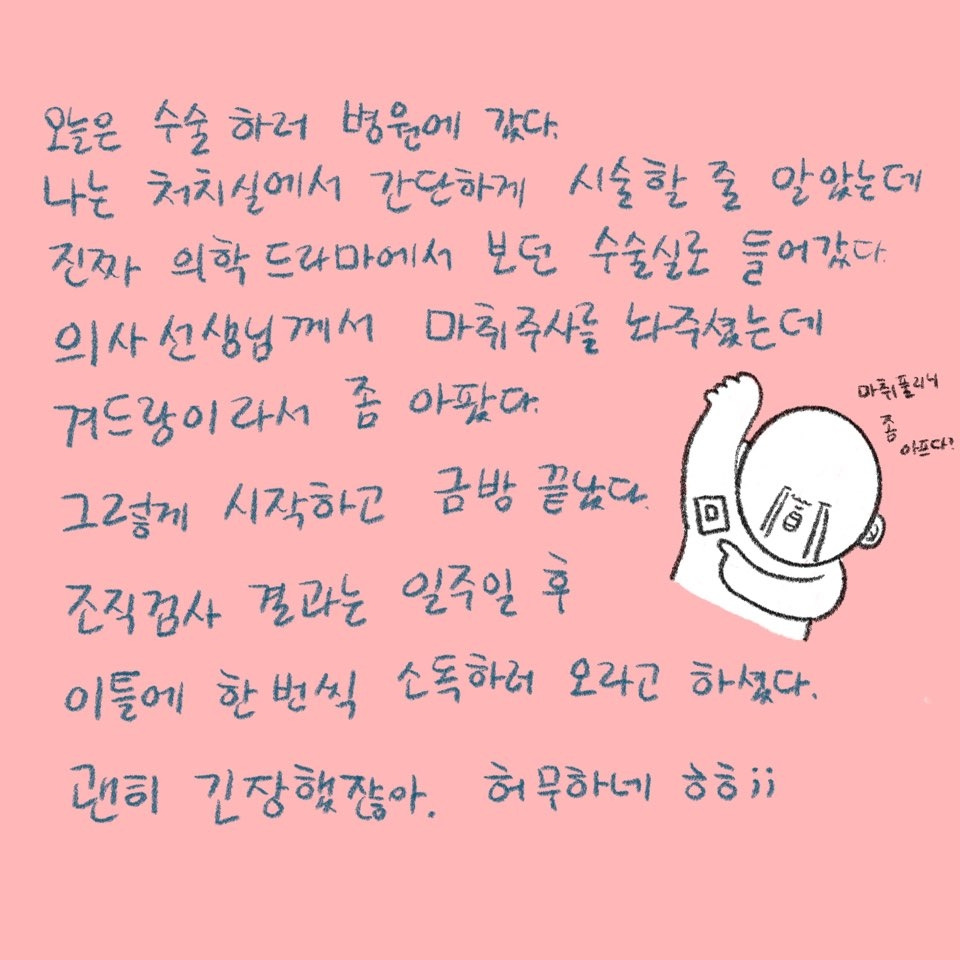 오늘은 수술 하러 병원에 갔다.
나는 처치실에서 간단하게 시술할 줄 알았는데
진짜 의학드라마에서 보던 수술실로 들어갔다.
의사선생님께서 마취주사를 놔주셨는데
겨드랑이라서 좀 아팠다.
마취풀리니
좀
아프다?
그렇게 시작하고 금방 끝났다.
조직검사 결과는 일주일 후
이틀에 한번씩 소독하러 오라고 하셨다.
괜히 긴장했잖아. 허무하네 ㅎㅎ;;